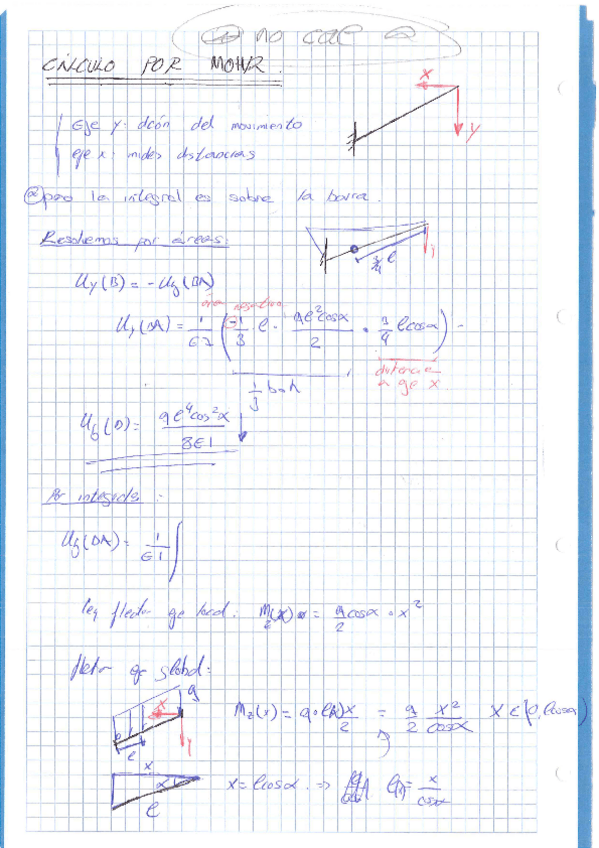 no cal
CÁLCULO POR MOHR.
x
y
Eje y: dcón del movimiento
eje x: mides distancias
pero la integral es sobre la barra.
Resolvemos por áreas:
3/4 l
y
Uy(B) = -Uy(BA)
área negativa
Uy(BA) = 1/EI (-1/3 · l · ql²cosα/2 · 3/4 lcosα) =
distancia
a eje x
1/3 b·h
Uy(B) = ql⁴cos²α/8EI ↓
Por integrales:
Uy(BA) = 1/EI ∫
ley flector eje local. Mz(x) = q/2 cosα · x²
flector eje global:
q
x
y
l
Mz(x) = q·l(x)x/2 = q/2 x²/cosα x ∈ [0, lcosα]
x
α
l
x = lcosα ⇒ l(x) = x/cosα